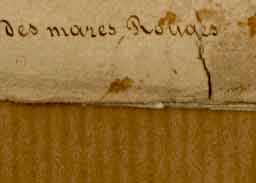 des mares Rouges